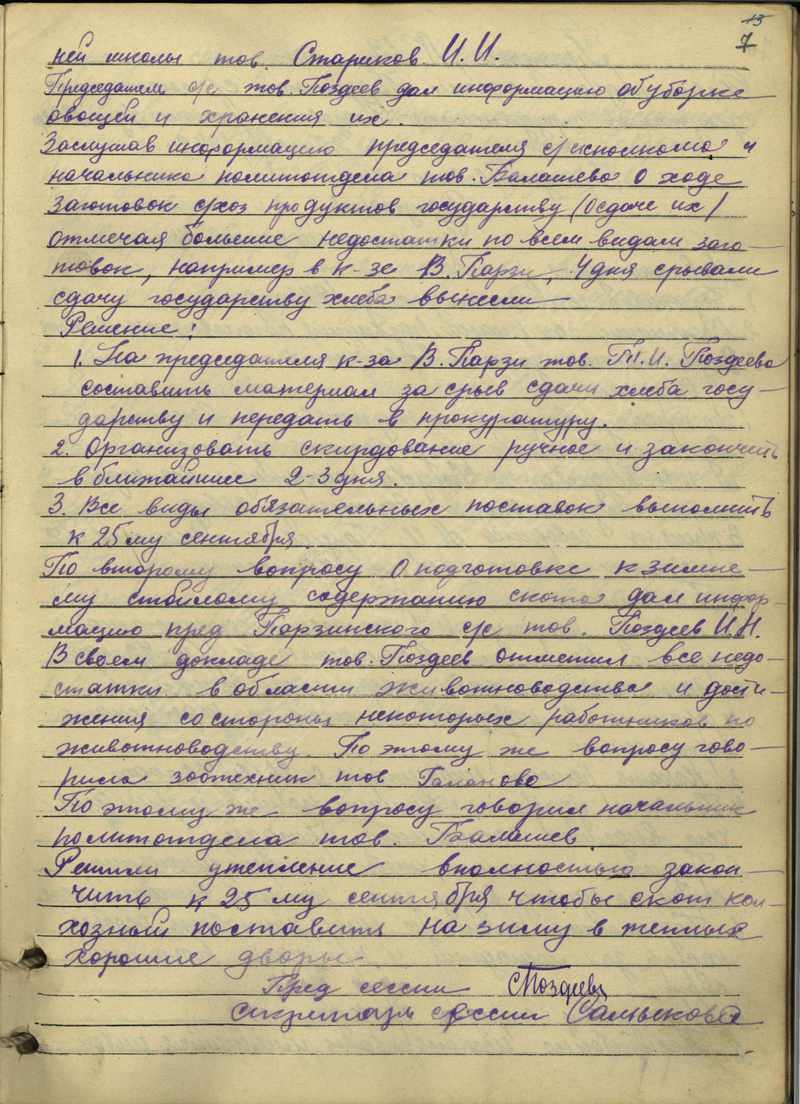 13
7
ней школы тов. Стариков И.И.
Председателем с/с тов. Поздеев дал информацию об уборке
овощей и хранения их.
Заслушав информацию председателя с/исполкома и
начальника политотдела тов. Балашева о ходе
заготовок с/хоз продуктов государству (о сдаче их)
отмечая большие недостатки по всем видам заго-
товок, например в к-зе В. Парзи, 4 дня срывали
сдачу государству хлеба вынесли
Решение:
1. На председателя к-за В. Парзи тов. Поздеева
составить материал за срыв сдачи хлеба госу-
дарству и передать в прокуратуру.
2. Организовать скирдование ручное и закончить
в ближайшие 2-3 дня.
3. Все виды обязательных поставок выполнить
к 25 му сентября.
По второму вопросу о подготовке к зимне-
му стойлому содержанию скота дал инфор-
мацию пред Парзинского с/с тов. Поздеев И.Н.
В своем докладе тов. Поздеев отметил все недо-
статки в области животноводства и дости-
жения со стороны некоторых работников по
животноводству. По этому же вопросу гово-
рила зоотехник тов Галанова
По этому же вопросу говорил начальник
политотдела тов. Балашев
Решили утепление вполностью закон-
чить к 25 му сентября чтобы скот кол-
хозный поставить на зиму в теплых
хорошие дворы.
Пред сессии Поздеев
Секретарь сессии Салтыкова